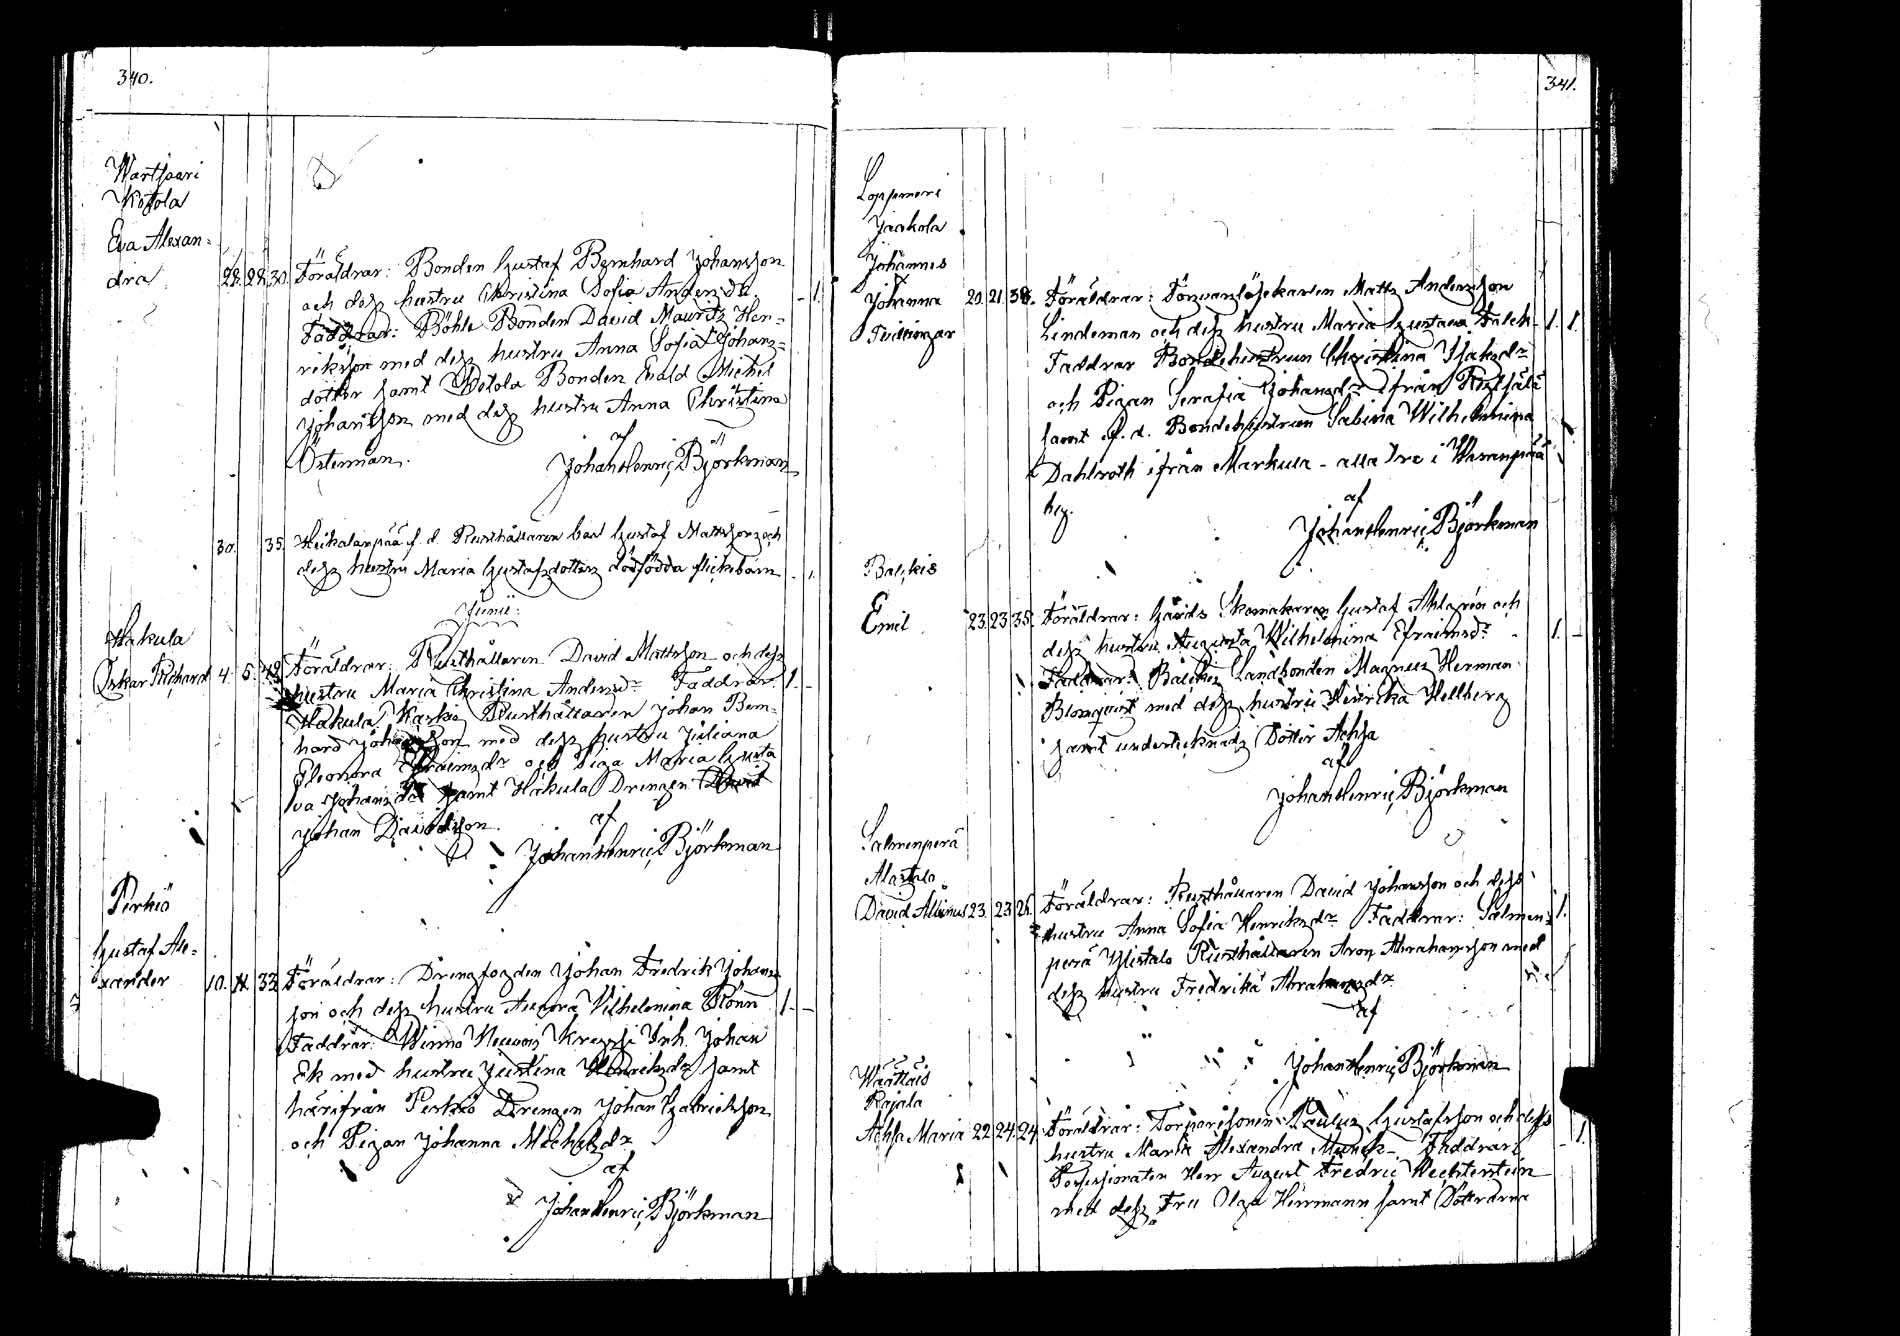 340.
Wartsaari
Kotola
Eva Alexan=
dra
28. 28. 30. Föräldrar: Bonden Gustaf Bernhard Johansson
och dess hustru Christina Sofia Andersdr. - 1.
Faddrar: Böhle Bonden David Mauritz Hen=
riksson med dess hustru Anna Sofia Johans=
dotter samt Ketola Bonden Evald Michel
Johansson med dess hustru Anna Christina
Österman.
af
Johan Henric Björkman
30. 35. Heikolanpää f. d. Rusthållaren Gustaf Mattsson och
dess hustru Maria Gustafsdotters dödfödda flickebarn - 1.
Junii:
Hakula
Oskar Richard 4. 5. 42. Föräldrar: Rusthållaren David Mattsson och dess
hustru Maria Christina Andersdr Faddrar: 1. -
Hakula Karkis Rusthållaren Johan Bern=
hard Johansson med dess hustru Juliana
Eleonora Efraimsdr och Piga Maria Gusta
va Johansdr samt Hakula Drengen
Johan Davidsson.
af
Johan Henric Björkman
Perkiö
Gustaf Ale=
xander
10. 11. 33. Föräldrar: Drengfogden Johan Fredrik Johans
son och dess hustru Aurora Vilhelmina Rönn 1. -
Faddrar: Winno Inh. Johan
Ek med hustru Justina Henriksdr samt
härifrån Perkiö Drengen Johan Gabrielsson
och Pigan Johanna Michelsdr
af
Johan Henric Björkman
341.
Loppmeri
Jaakola
Johannes
Johanna
Tvillingar
20. 21. 38. Föräldrar: Matts Andersson
Lindeman och dess hustru Maria Gustava Falck - 1. 1.
Faddrar Bondehustrun Christina Isaksdr
och Pigan Serafia Johansdr ifrån
samt f. d. Bondehustrun Sabina Wilhelmina
Dahlroth ifrån Markula - alla tre i Wuranpää
by.
af
Johan Henric Björkman
Balckis
Emil
23. 23. 35. Föräldrar: Gårds Skomakaren Gustaf Ahlgrén och
dess hustru Augusta Wilhelmina Efraimsdr - 1. -
Faddrar: Balckis Landbonden Magnus Herman
Blomqvist med dess hustru Henrika Hellberg
samt undertecknads Dotter Achsa
af
Johan Henric Björkman
Salmenperä
Alastalo
David Albinus 23. 23. 26. Föräldrar: Rusthållaren David Johansson och dess
hustru Anna Sofia Henriksdr Faddrar: Salmen= 1.
perä Ylistalo Rusthållaren Aron Abrahamsson med
dess hustru Fredrika Abrahamsdr
af
Johan Henric Björkman
Wäättäis
Rajala
Achsa Maria 22. 24. 24. Föräldrar: Torparesonen Paulus Gustafsson och dess
hustru Maria Alexandra Munck - Faddrar: - 1.
Possessionaten Herr August Fredric Wechterstein
med dess Fru Olga Herrmann samt Döttrarna